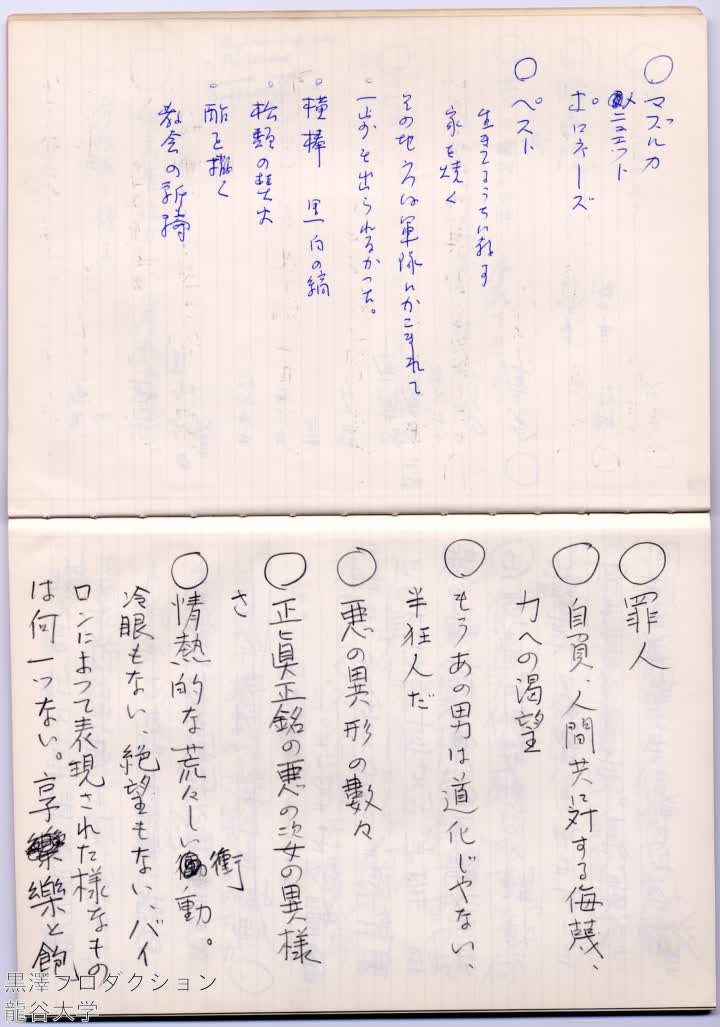 ○ マズルカ
メニュエット
ポロネーズ
○ ペスト
生きてるうちに殺す
家を焼く
その地方は軍隊にかこまれて
一歩も出られなかった。
。橦棒 黒白の縞
。松類の焚火
。酢を撒く
教会の祈祷
○ 罪人
○ 自負、人間共に対する侮蔑、
力への渇望
○ もうあの男は道化じやない、
半狂人だ
○ 悪の異形の数々
○ 正眞正銘の悪の姿の異様
さ
○ 情熱的な荒々しい衝動。
冷眼もない、絶望もない、バイ
ロンによって表現された様なもの
は何一つない。享樂と飽
黒澤プロダクション
龍谷大学